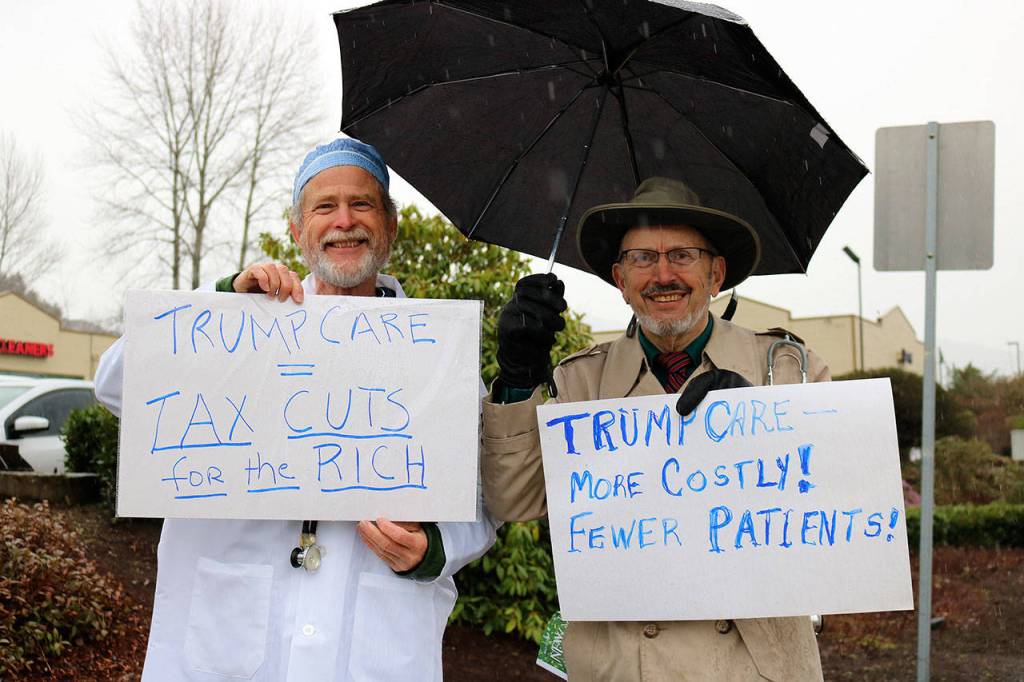 TRUMPCARE
=
TAX CUTS
for the RICH
TRUMPCARE —
MORE COSTLY!
FEWER PATIENTS!
CLEANERS